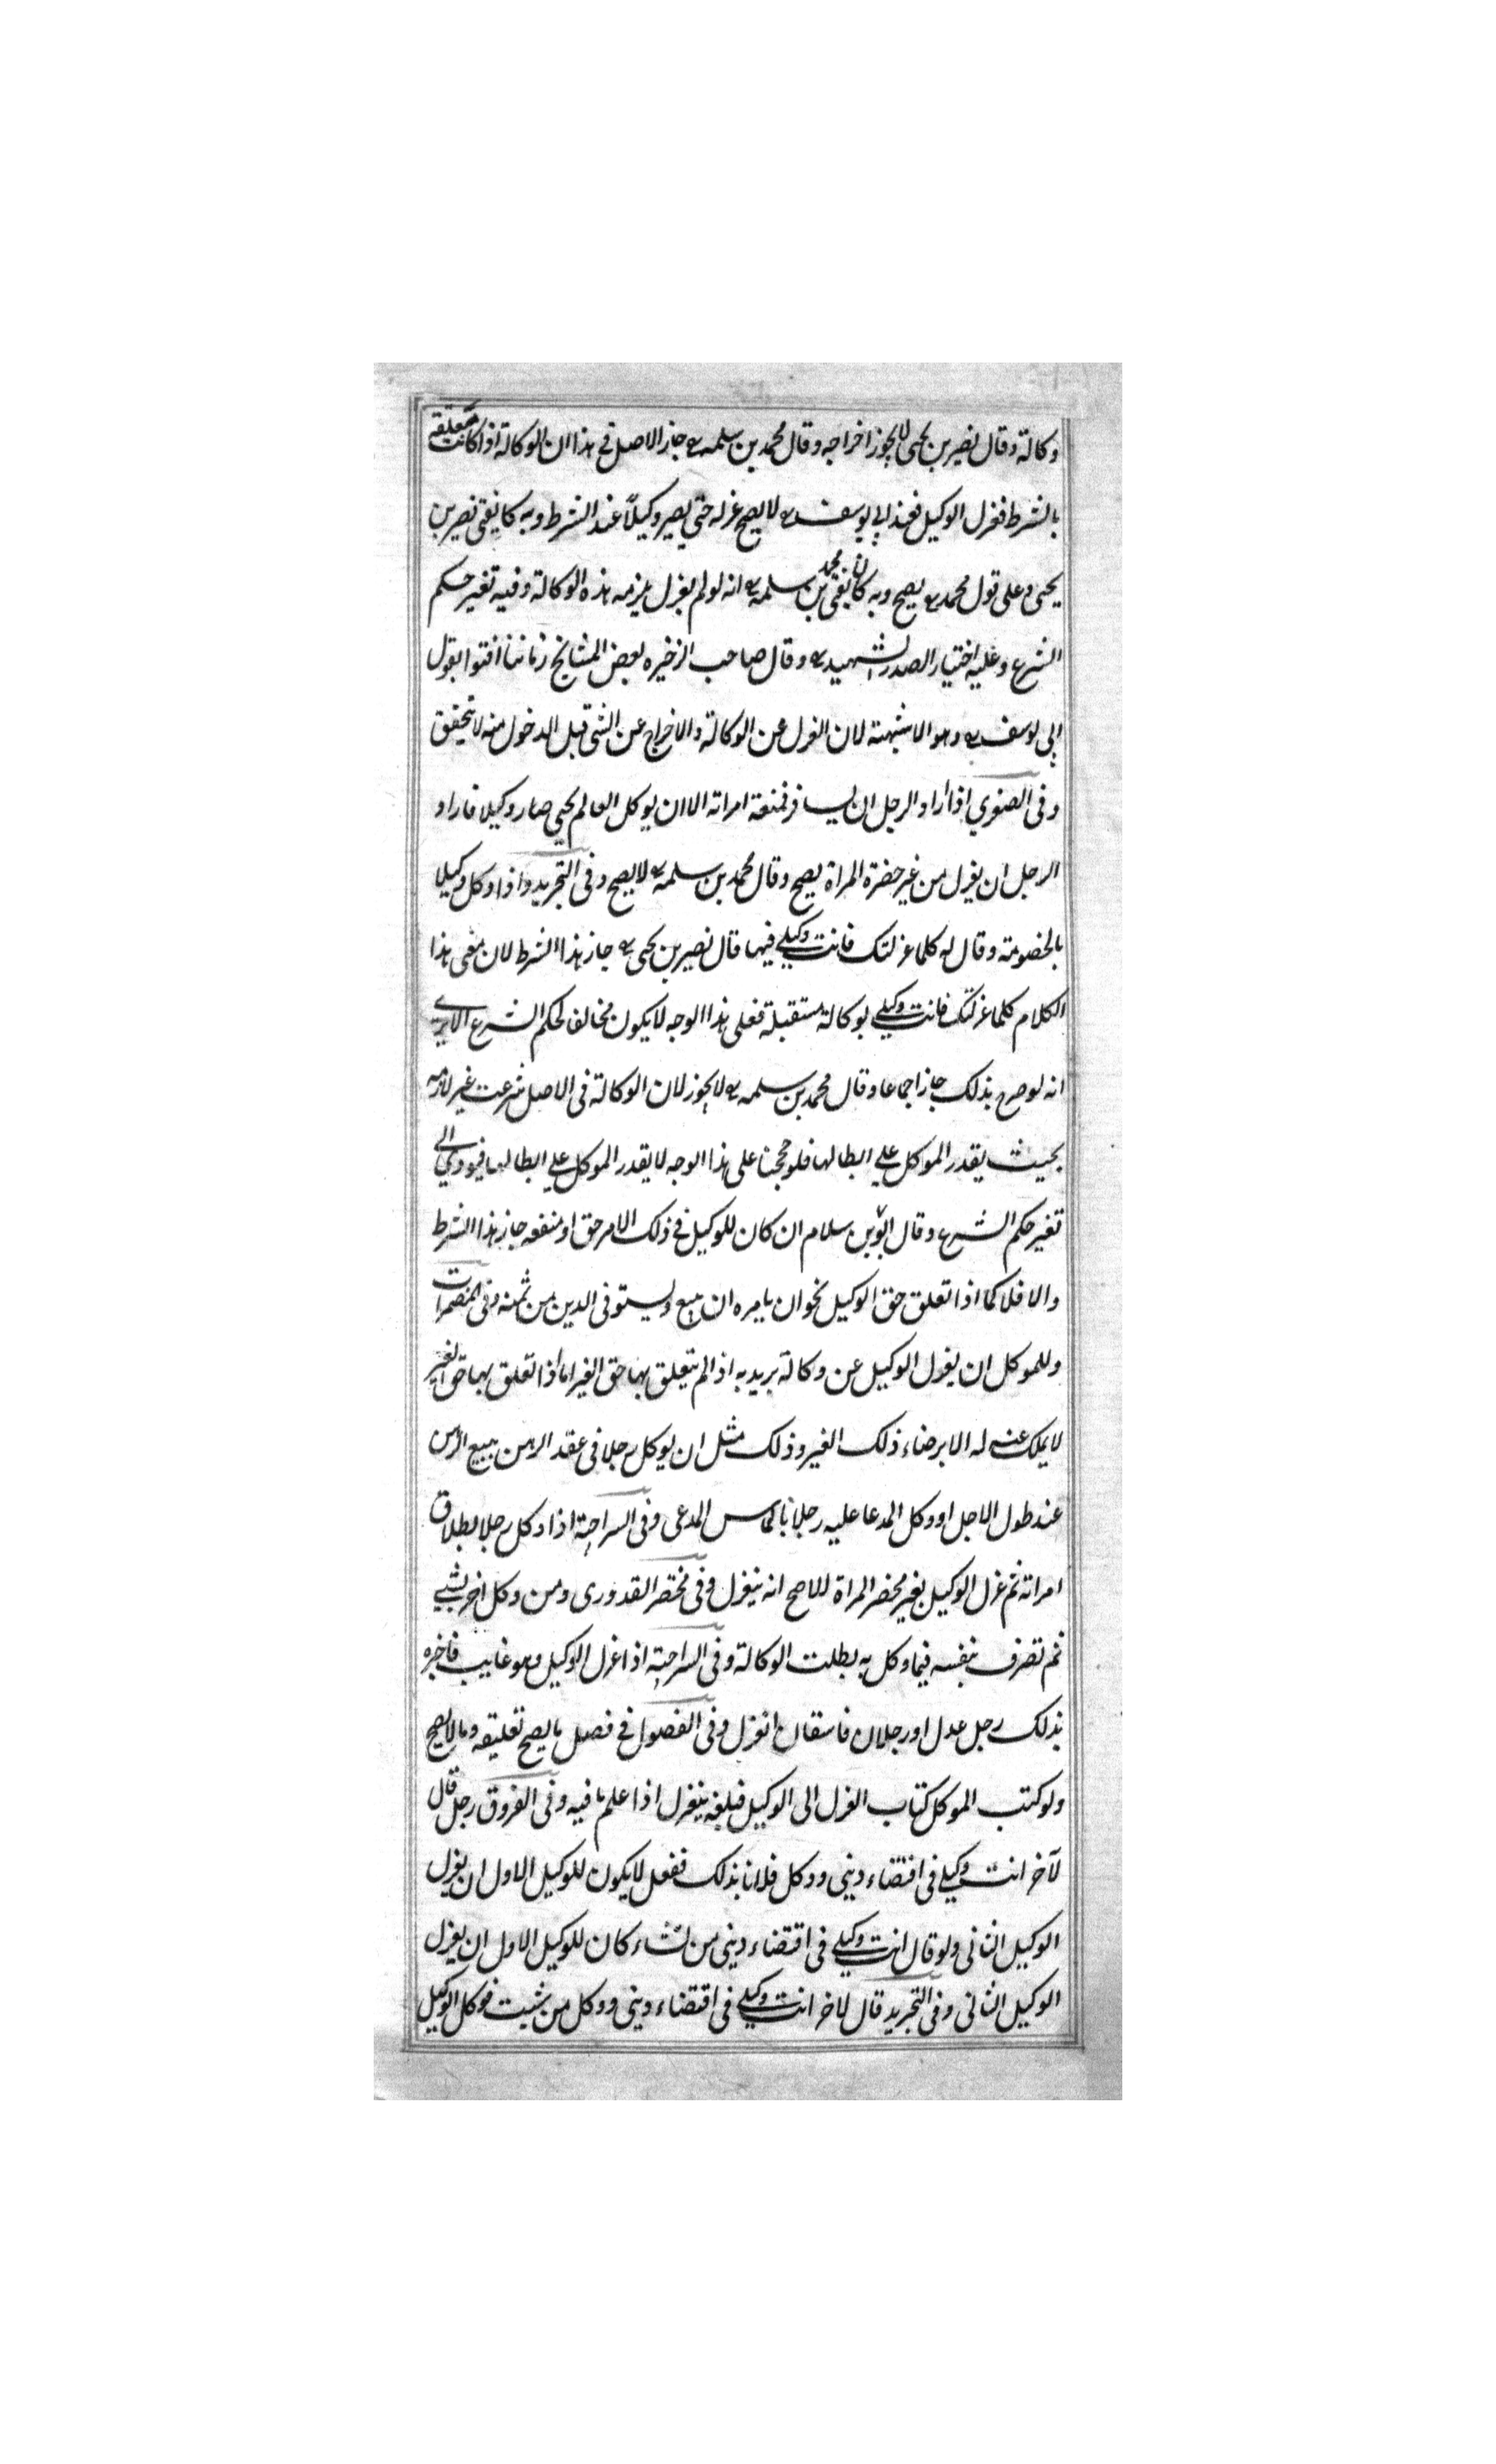 وكالة وقال نصير بن يحيى لا يجوز اخراجه وقال محمد بن سلمه رح جاز الاصل في هذا ان الوكالة اذا كانت معلقه
بالشرط فعزل الوكيل فعند ابي يوسف رح لا يصح عزله حتى يصير وكيلاً عند الشرط وبه كا يفتى نصير بن
يحيى وعلى قول محمد رح يصح وبه كان يفتى محمد بن سلمه رح انه لو لم يعزل يلزمه هذه الوكالة وفيه تغير حكم
الشرع وعليه اختيار الصدر الشهيد رح وقال صاحب الذخيره بعض المشايخ زماننا افتوا بقول
ابي يوسف رح وهو الاشبهة لان العزل عن الوكالة والاخراج عن الشي قبل الدخول منه لا يتحقق
وفى الصغري اذا اراد الرجل ان يسافر فمنعة امراته الا ان يوكل العالم يحيى صار وكيلا فاراد
الرجل ان يعزل من غير حضرة المراة يصح وقال محمد بن سلمه رح لا يصح وفى التجريد واذا وكل وكيلا
بالخصومة وقال له كلما عزلتك فانت وكيلي فيها قال نصير بن يحيى رح جاز هذا الشرط لان معنى هذا
الكلام كلما عزلتك فانت وكيلي بوكالة مستقبلة فعلى هذا الوجه لا يكون مخالف لحكم الشرع الا يرى
انه لو صرح بذلك جاز اجماعا وقال محمد بن سلمه رح لا يجوز لان الوكالة فى الاصل شرعت غير لازمه
بحيث يقدر الموكل علي ابطالها فلو حججنا على هذا الوجه لا يقدر الموكل علي ابطالها فيودي الي
تغير حكم الشرع وقال ابو بن سلام ان كان للوكيل في ذلك الامر حق او منفعه جاز هذا الشرط
والا فلا كما اذا تعلق حق الوكيل نحو ان يامره ان يبيع ويستوفى الدين من ثمنه وفى المضمرات
وللموكل ان يعزل الوكيل عن وكالة يريد به اذا لم يتعلق بها حق الغير اما اذا تعلق بها حق الغير
لا يملك عزله الا برضاء ذلك الغير وذلك مثل ان يوكل رجلا فى عقد الرهن ببيع الرهن
عند طول الاجل او وكل المدعا عليه رجلا بالتماس المدعى وفى السراجية اذا وكل رجلا بطلاق
امراته ثم عزل الوكيل بغير محضر المراة الاصح انه ينعزل وفى مختصر القدورى ومن وكل اخر بشي
ثم تصرف بنفسه فيما وكل به بطلت الوكالة وفى السراجية اذا عزل الوكيل وهو غايب فاخبره
بذلك رجل عدل او رجلان فاسقان انعزل وفى الفصول في فصل ما يصح تعليقه وما لا يصح
ولو كتب الموكل كتاب العزل الى الوكيل فبلغه ينعزل اذا علم ما فيه وفى الفروق رجل قال
لآخر انت وكيلي فى اقتضاء دينى ووكل فلانا بذلك ففعل لا يكون للوكيل الاول ان يعزل
الوكيل الثانى ولو قال انت وكيلي فى اقتضاء دينى من تشاء كان للوكيل الاول ان يعزل
الوكيل الثانى وفى التجريد قال لاخر انت وكيلي فى اقتضاء دينى ووكل من شيت فوكل الوكيل